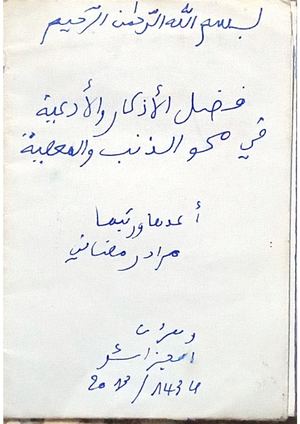 بسم الله الرحمن الرحيم
فضل الأذكار والأدعية
في محو الذنب والمعصية
أعدها ورتبها
مراد رمضاني
وهران
الجزائر
1434 / 2013